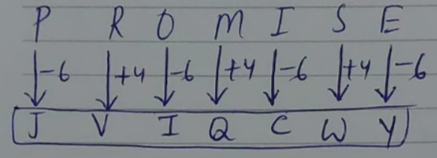 P R O M I S E
-6 +4 -6 +4 -6 +4 -6
J V I Q C W Y